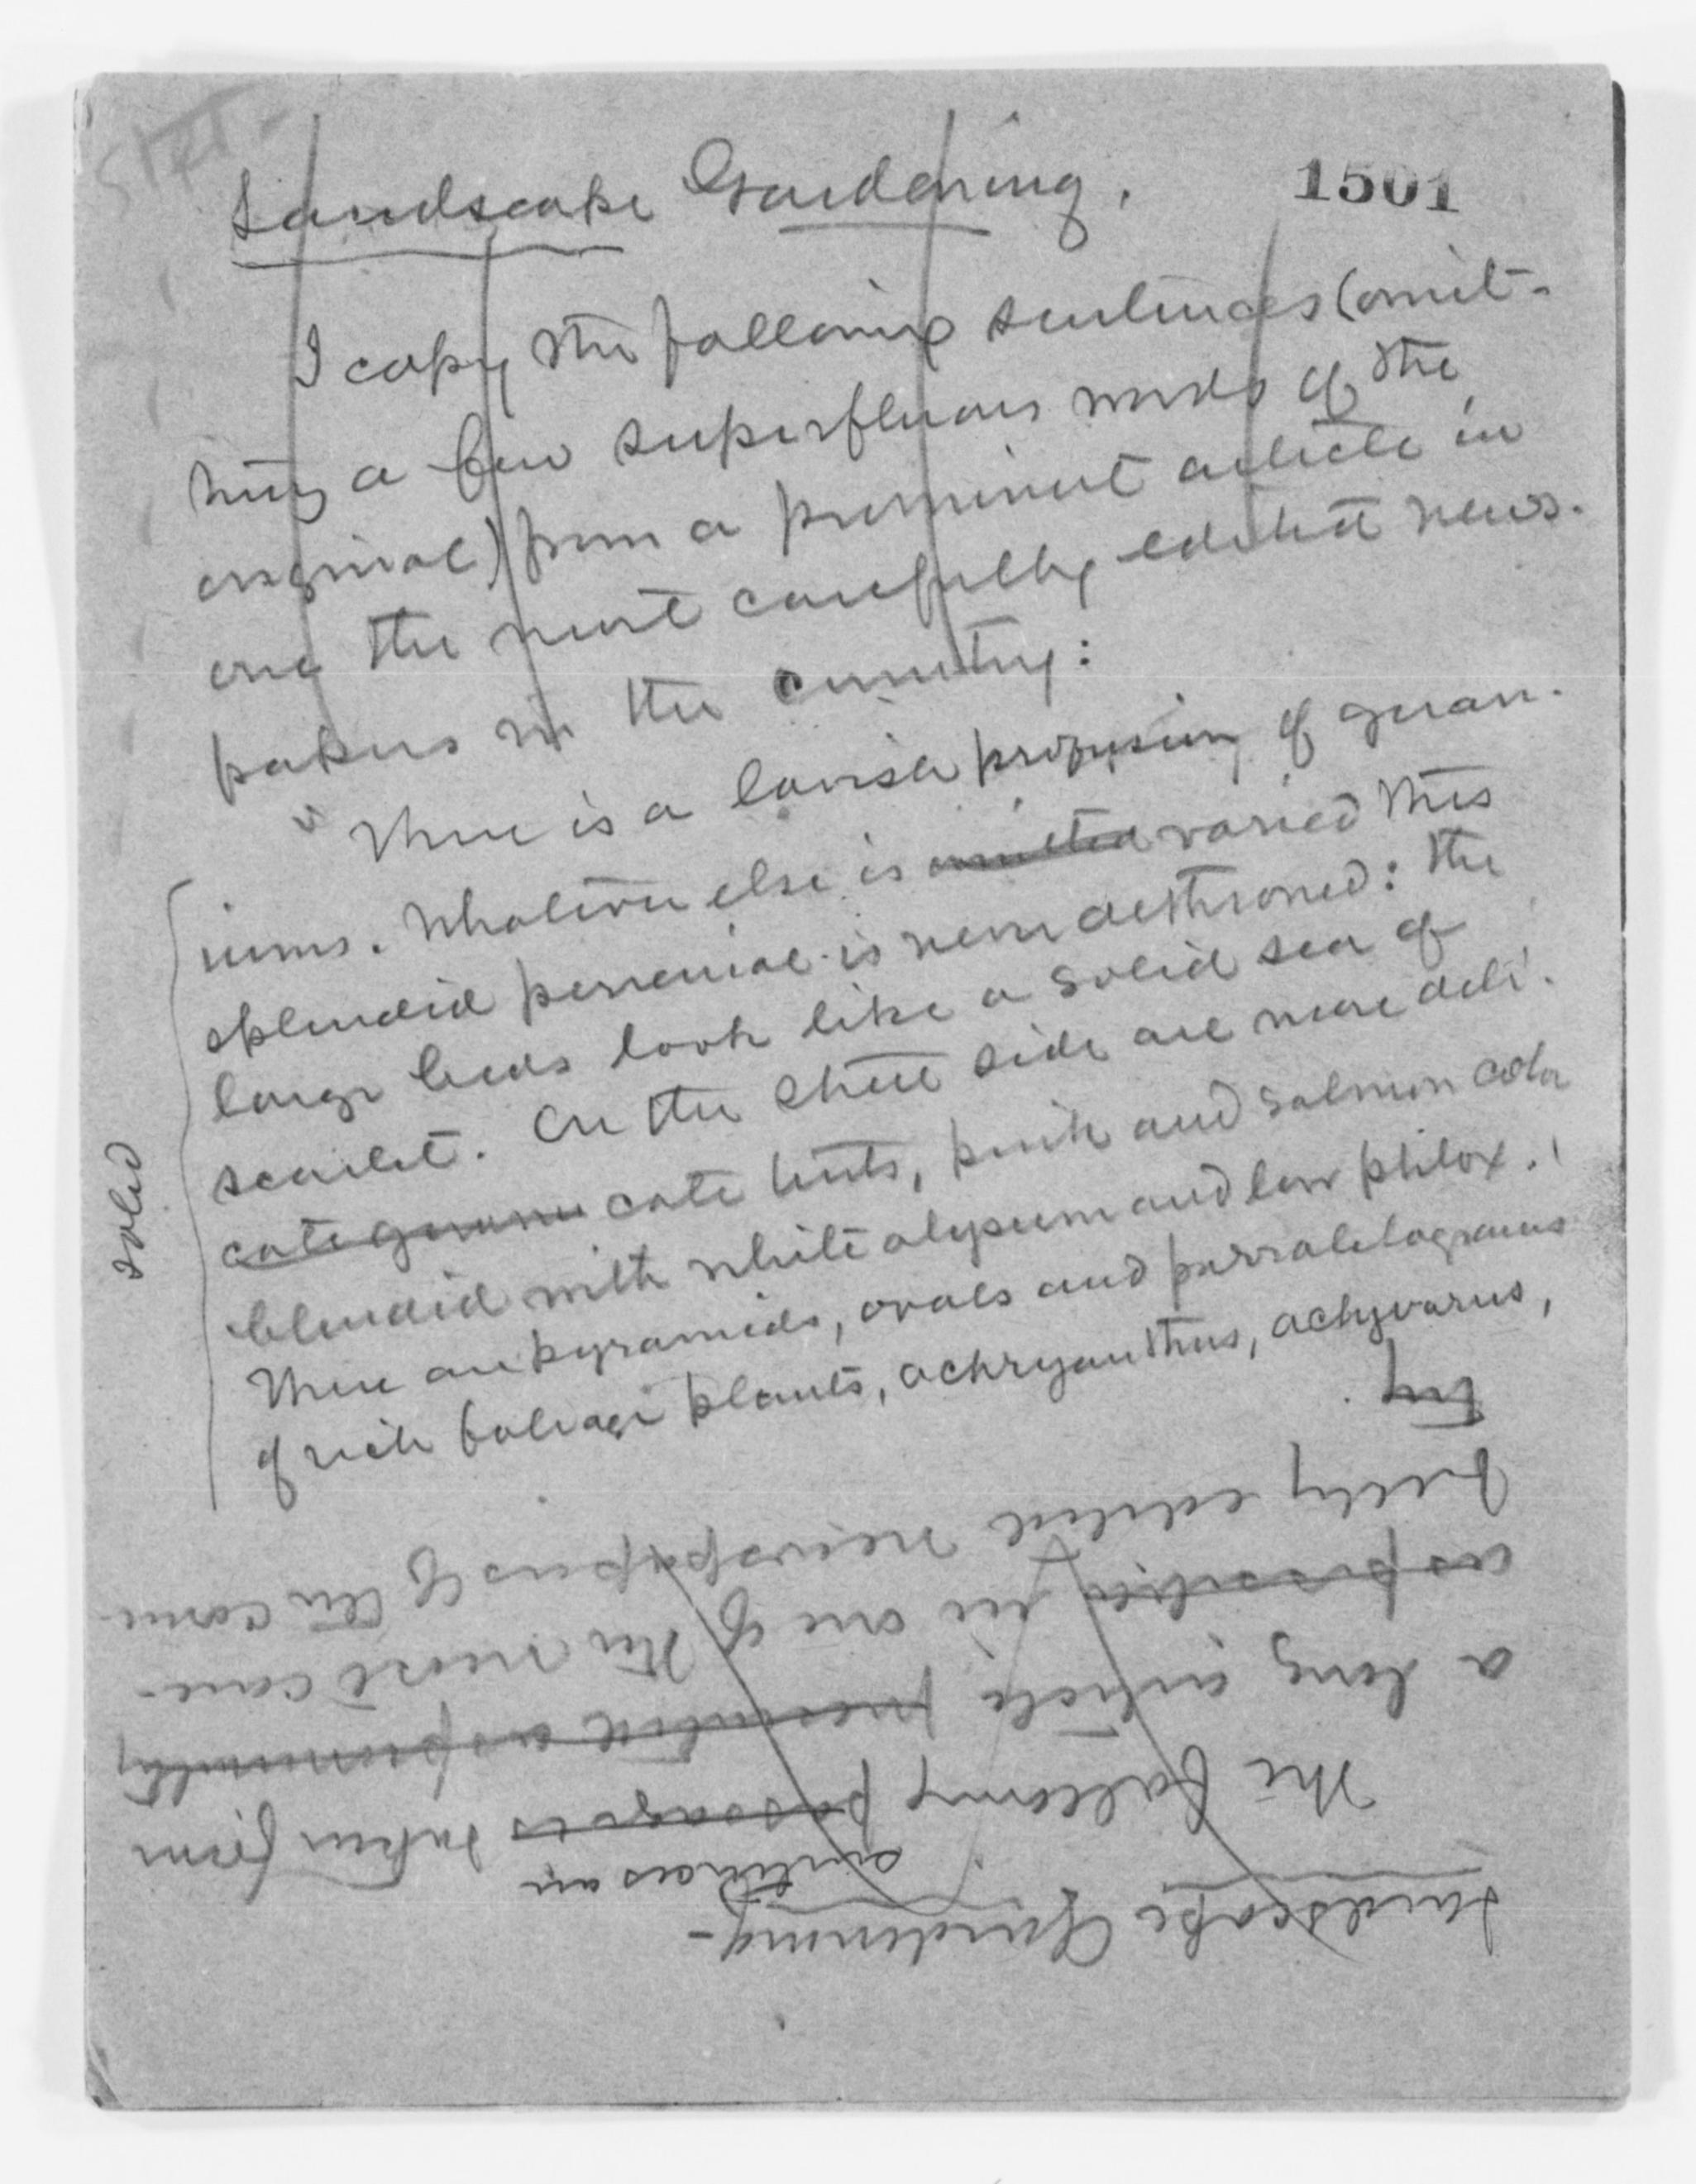 STET -
Landscape Gardening.
1501
I copy the following sentences (omit-
ting a few superfluous words of the
original) from a prominent article in
one the most carefully edited news-
papers in the country:
" There is a lavish profusion of geran-
iums. Whatever else is omitted varied this
splendid perennial is never dethroned: the
large beds look like a solid sea of
scarlet. On the street side are more deli-
cate geraniu cate tints, pink and salmon color
blended with white alyssum and low phlox.
There are pyramids, ovals and parralelograms
of rich foliage plants, achryanthus, achyvarus,
solid
Landscape Gardening -
sentences are
The following passage is taken from
a long article presented as prominently
as possible in one of the most care-
fully edited newspapers of the coun-
try.